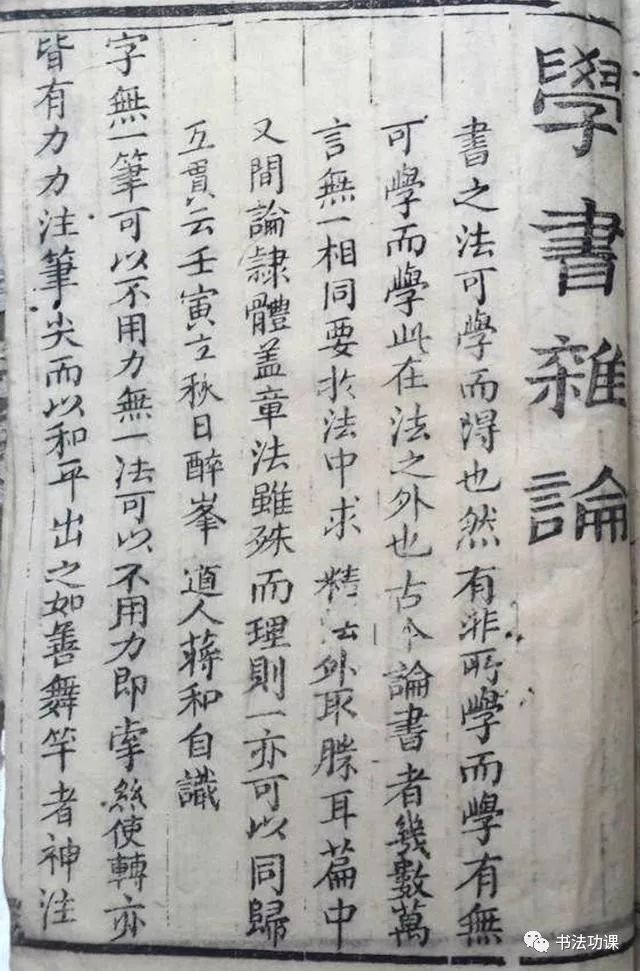 學書雜論
書之法可學而得也然有非所學而學有無
可學而學此在法之外也古今論書者幾數萬
言無一相同要扵法中求精法外取勝耳篇中
又間論隸體蓋章法雖殊而理則一亦可以同歸
互貫云壬寅立秋日醉峯道人蔣和自識
字無一筆可以不用力無一法可以不用力即牽絲使轉亦
皆有力力注筆尖而以和平出之如善舞竿者神注
书法功课